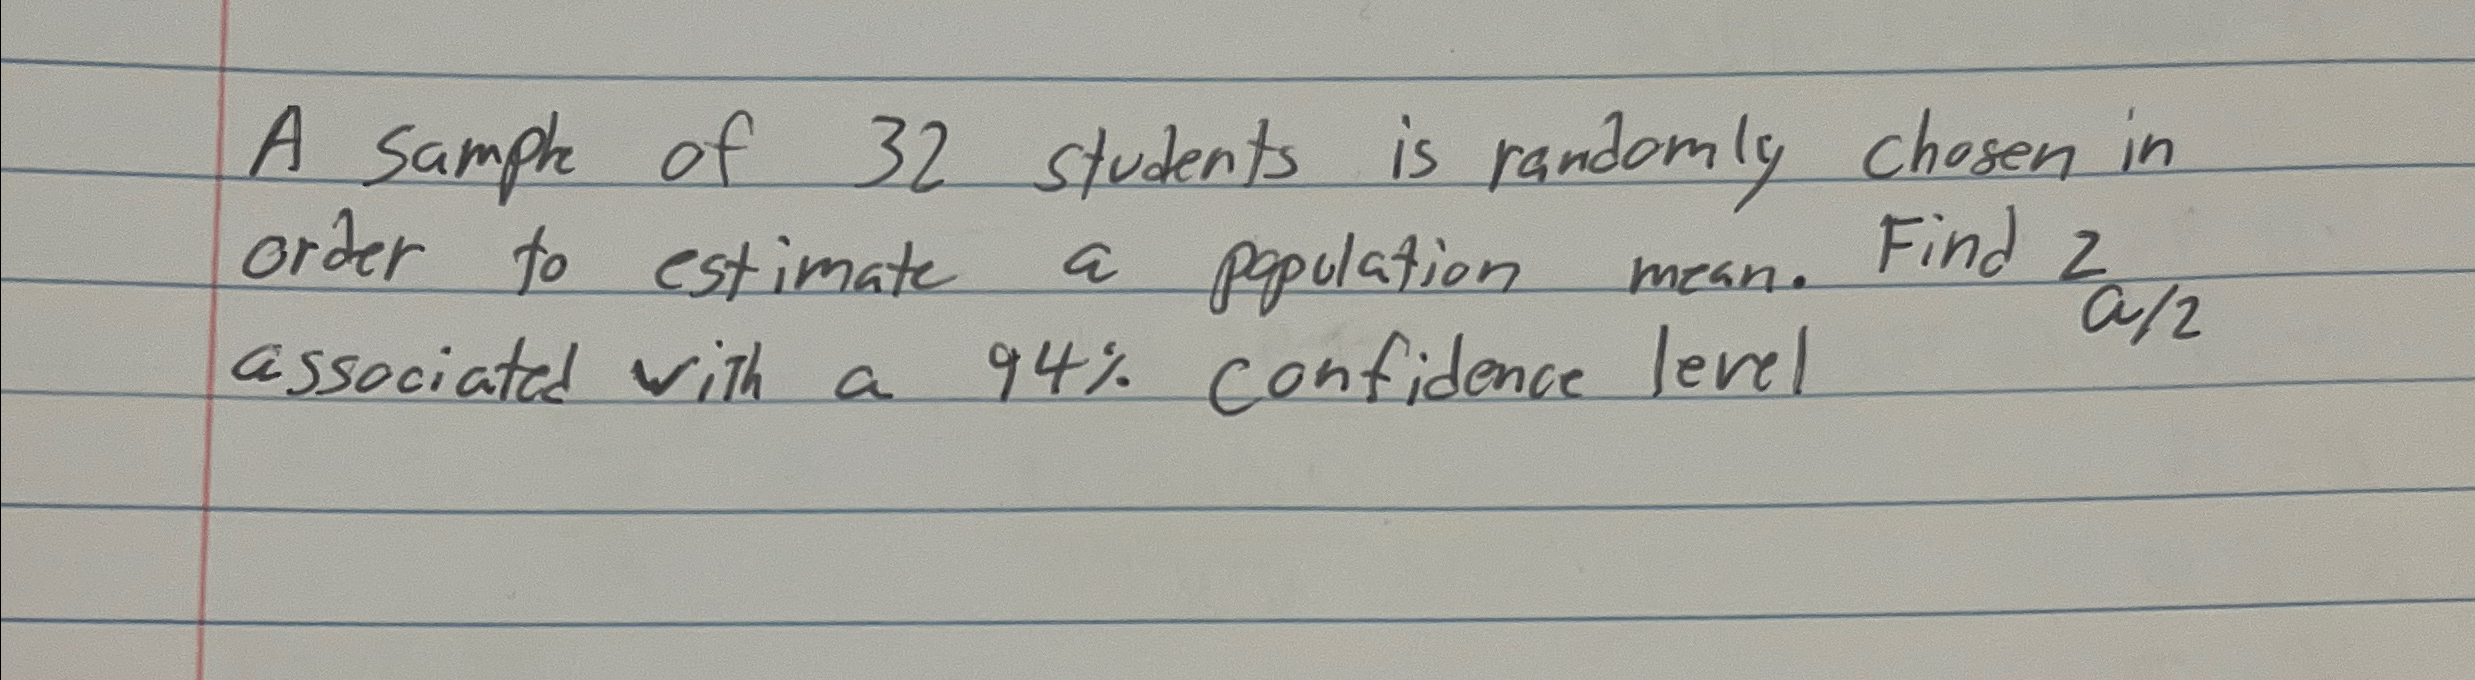 A sample of 32 students is randomly chosen in
order to estimate a population mean. Find z a/2
associated with a 94% confidence level